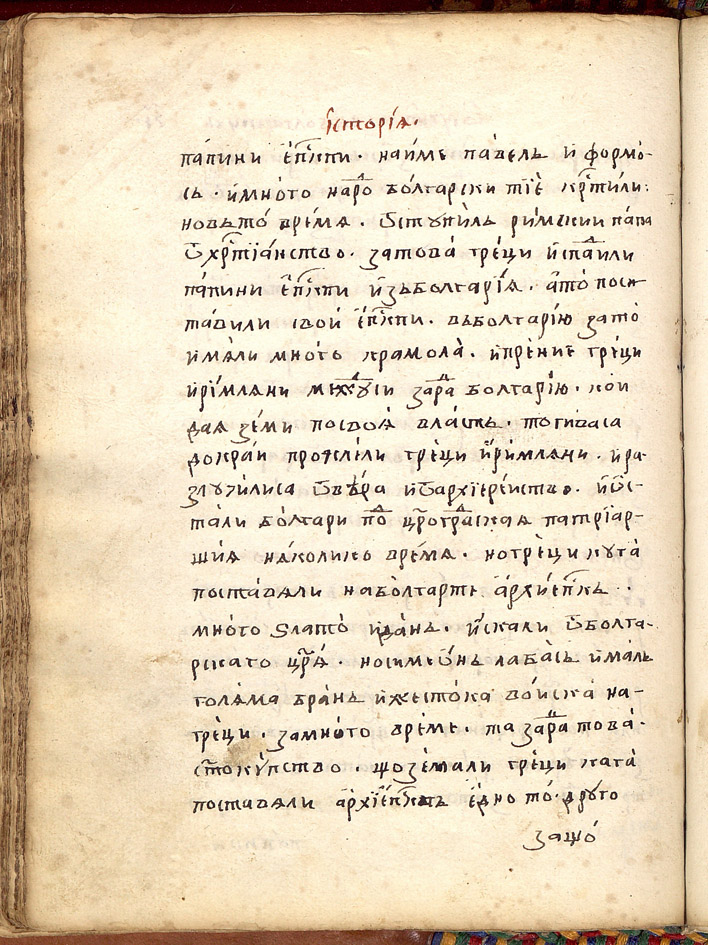 їсторїѧ.
папини єп҃кпи. наиме павель и формо-
сь. и много наро҃ болгарски тїе кр҃тили:
новьто времѧ. ѿступиль римскии папа
ѿ хр҃тїанство. затова греци испаили
папини єп҃кпи изьболгарїѧ. ато пос
тавили свои єп҃кпи. вьболгарїю зато
имѧли много крамола. ипренїе греци
иримлѧни меж҃ꙋси зара҃ болгарїю. кои
даѧ земи посвоѧ власть. тогиваса
докраи проклѧли греци иримлѧни. ира-
злꙋчилиса ѿвѣра иѿархїереиство. иѿс-
тали болгари по҃ цр҃огра҃скаѧ патрїар-
шиѧ нѧколико времѧ. но греци кога
поставѧли наболгарте архїеп҃кпь.
много злато идань. искали ѿболга-
рскато цр҃ѧ. носимеѡнь лабась ималь
голѧма брань ижестока воиска на-
греци. замного време. та зара҃ това.
ст҃окупство. що земали греци кога
поставѧли архїеп҃кпь едно то. дрꙋго
защо